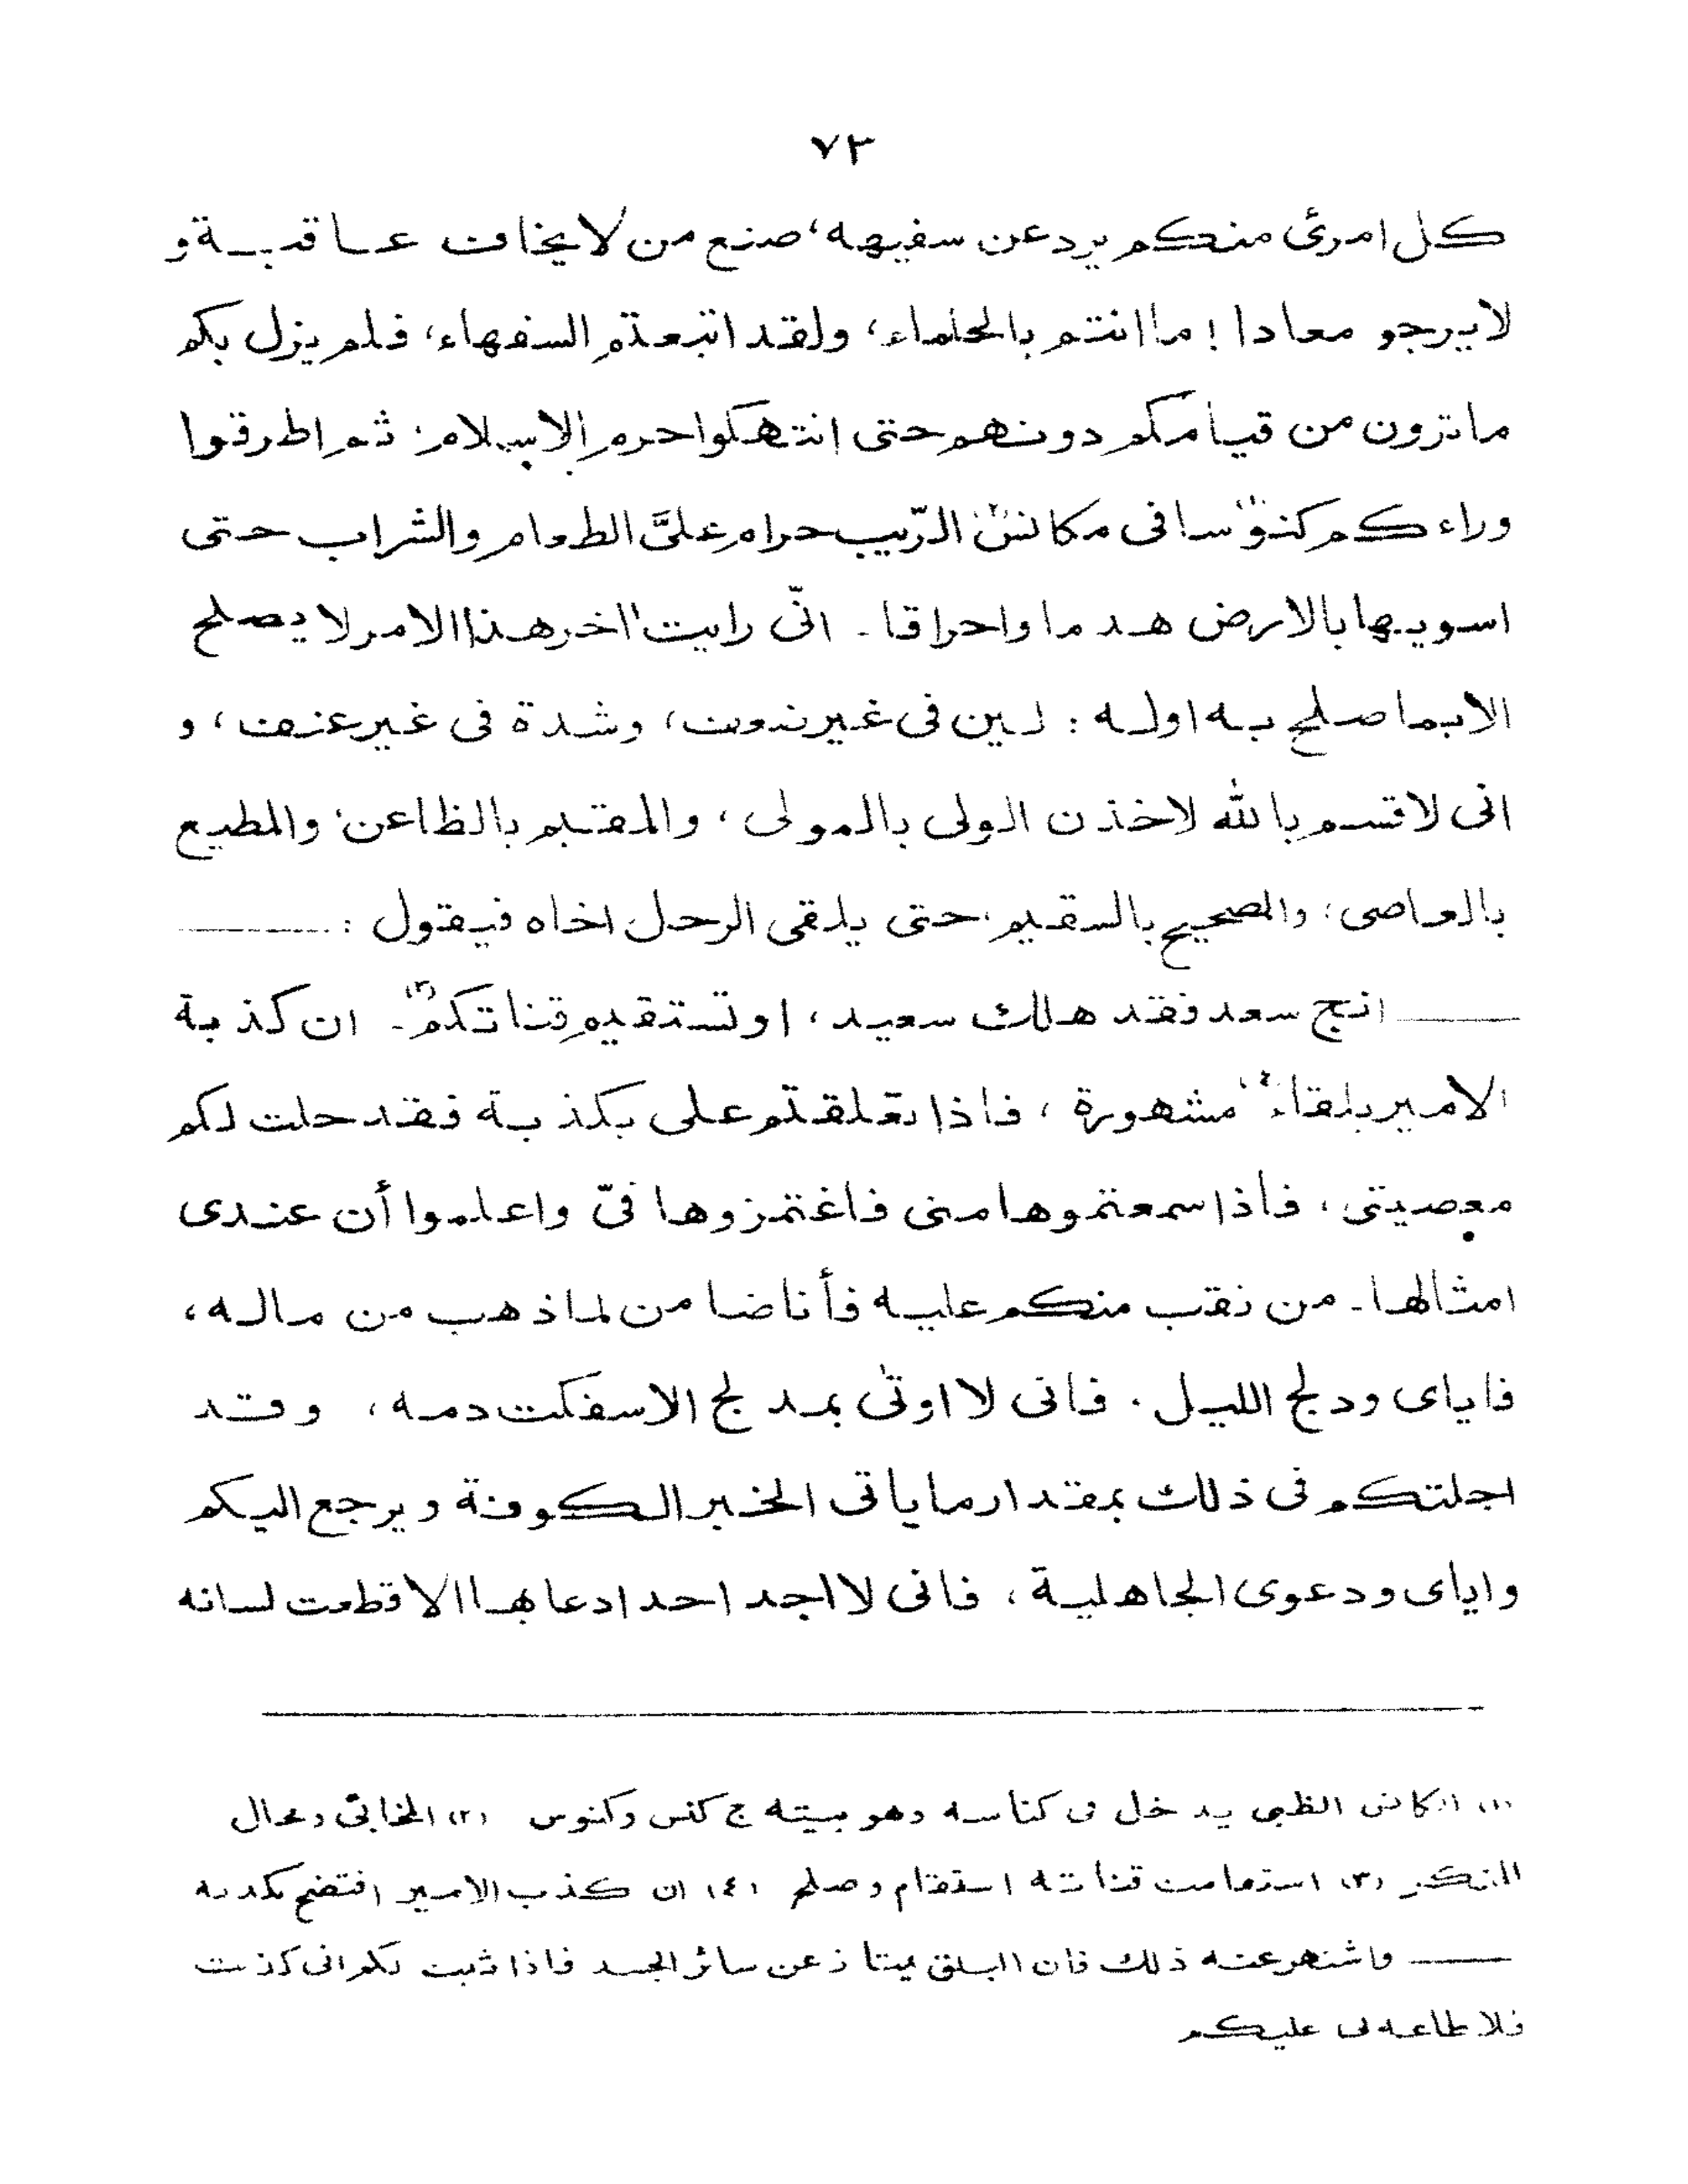 ٧٣
كل امرئ منكم يرد عن سفيهه، صنع من لا يخاف عاقبة و
لا يرجو معادا! ما انتم بالحلماء، ولقد اتبعتم السفهاء، فلم يزل بكم
ما ترون من قيامكم دونهم حتى انتهكوا حرم الاسلام، ثم اطرقوا
وراءكم كنوسا(١) فى مكانس(٢) الرّيب حرام علىَّ الطعام والشراب حتى
اسويها بالارض هدما واحراقا ـ انّى رايت اخر هذا الامر لا يصلح
الا بما صلح به اوله : لين فى غير ضعف، وشدة فى غير عنف، و
انى لاقسم بالله لاخذن الولى بالمولى، والمقيم بالظاعن، والمطيع
بالعاصى، والصحيح بالسقيم، حتى يلقى الرحل اخاه فيقول :
انج سعد فقد هلك سعيد، او تستقيم قناتكم(٣) ـ ان كذبة
الامير بلقاء(٤) مشهورة، فاذا تعلقتم على بكذبة فقد حلت لكم
معصيتى، فأذا سمعتموها منى فاغتمزوها فىّ واعلموا أن عندى
امثالها ـ من نقب منكم عليه فأنا ضامن لما ذهب من ماله،
فاياى ودلج الليل . فانى لا اوتى بمدلج الا سفكت دمه، وقد
اجلتكم فى ذلك بمقدار ما ياتى الخبر الكوفة ويرجع اليكم
واياى ودعوى الجاهلية، فانى لا اجد احدا دعا بها الا قطعت لسانه
(١) الكانس الظبى يدخل فى كناسه وهو بيته ج كنس وكنوس (٢) المخابئ ومحال
(٣) استقامت قناته استقام وصلح (٤) ان كذب الامير افتضح
واشتهر عنه ذلك فان البلق يمتاز عن سائر الجسد فاذا ثبت لكم انى كذبت
فلا طاعه لى عليكم